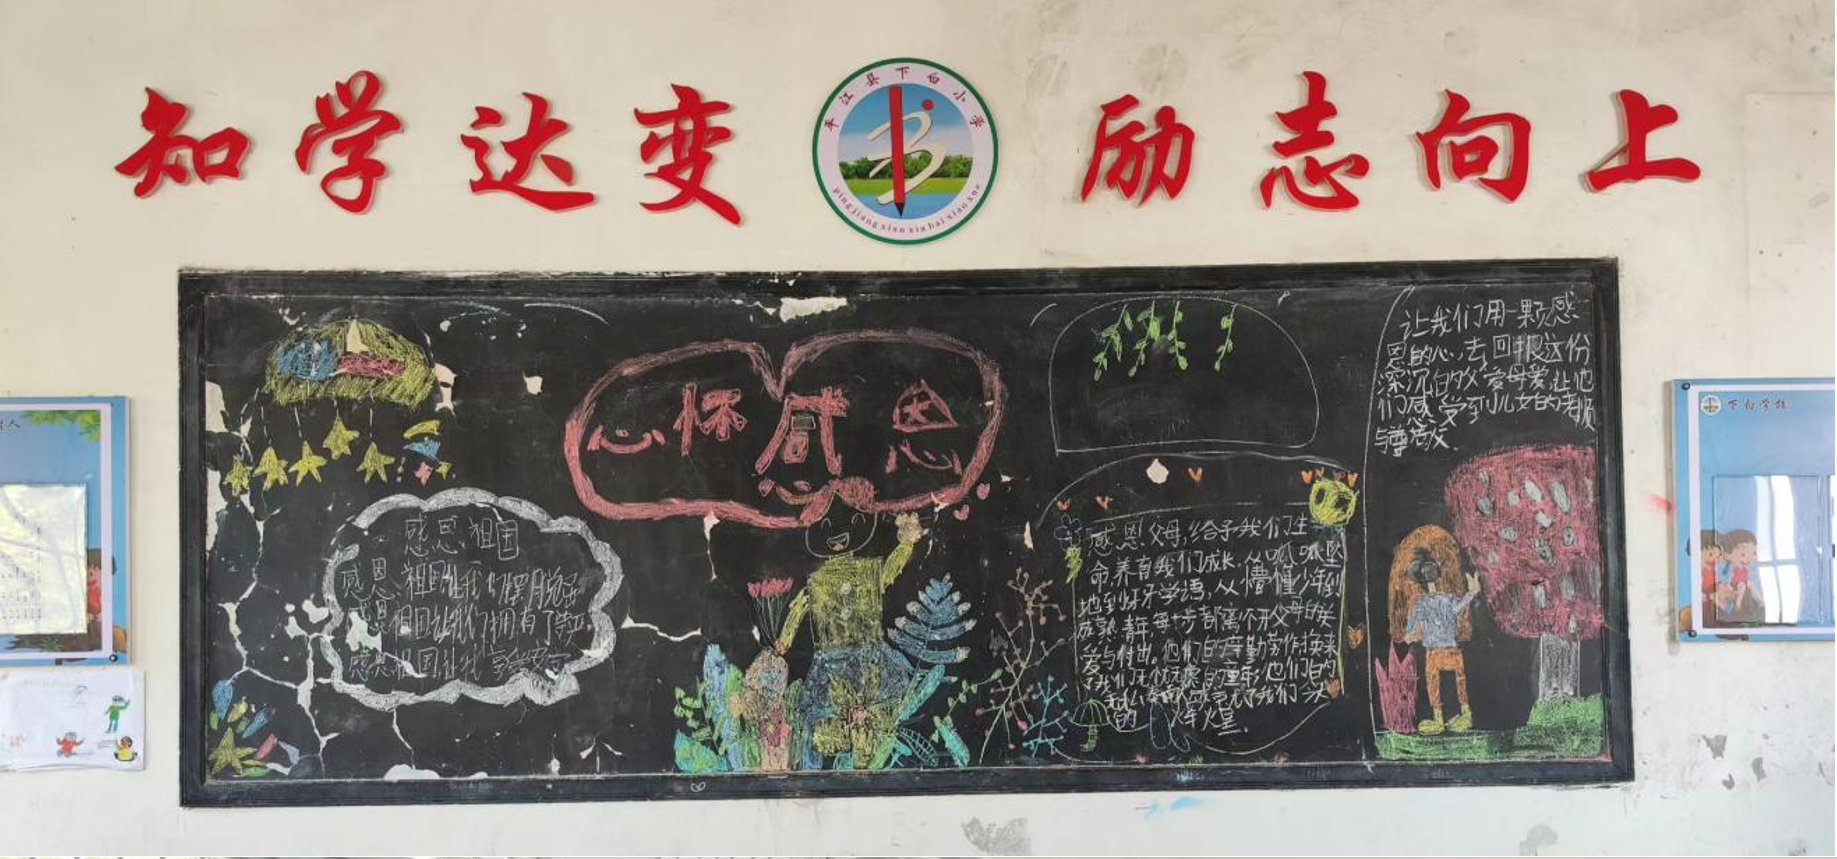 知学达变 励志向上
平江县下白小学
ping jiang xian xia bai xiao xue
下白学校
心怀感恩
感恩祖国
感恩祖国让我们摆脱
感恩祖国让我们拥有了
感恩祖国让我
感恩父母,给予我们生
命,养育我们成长,从呱呱坠
地到牙牙学语,从懵懂少年到
成熟青年,每一步都离不开父母的关
爱与付出。他们的辛勤劳作换来
了我们无忧无虑的童年,他们的
无私
的
让我们用一颗感
恩的心,去回报这份
深沉的父爱母爱,让他
们感受到儿女的孝顺
与尊敬。